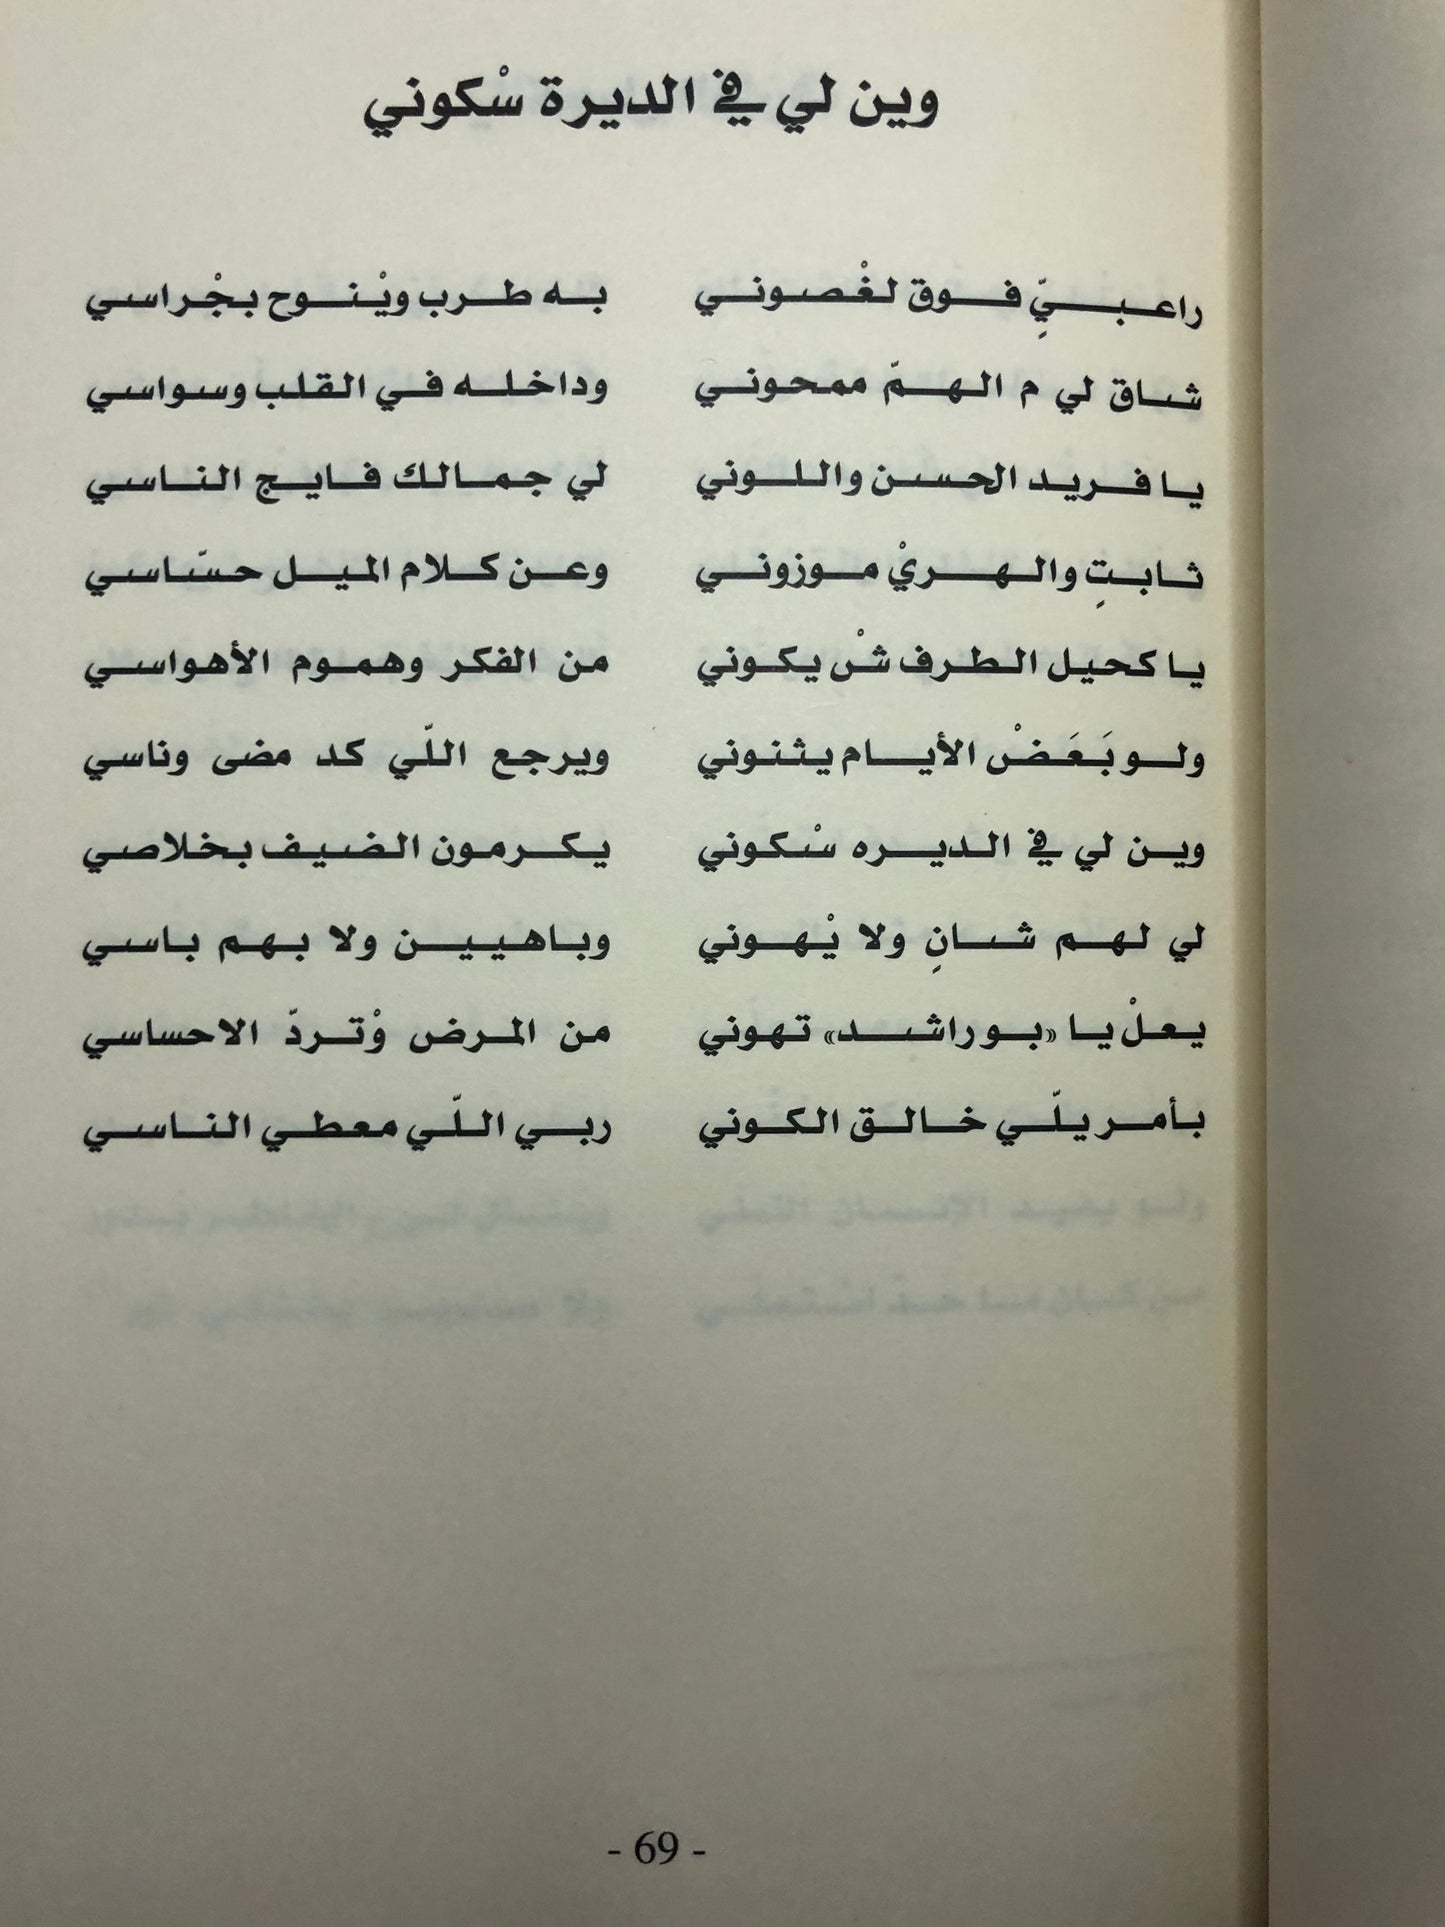 وين لي في الديرة سْكوني
راعبيٍّ فوق لغْصوني به طرب ويْنوح بجْراسي
شاق لي م الهمّ ممحوني وداخله في القلب وسواسي
يا فريد الحسن واللوني لي جمالك فايج الناسي
ثابتٍ والهريْ موزوني وعن كلام الميل حسّاسي
يا كحيل الطرف شْ يكوني من الفكر وهموم الأهواسي
ولو بَعَضْ الأيام يثنوني ويرجع اللّي كد مضى وناسي
وين لي في الديره سْكوني يكرمون الضيف بخلاصي
لي لهم شانٍ ولا يْهوني وباهيين ولا بهم باسي
يعلْ يا «بوراشد» تهوني من المرض وْتردّ الاحساسي
بأمر يلّي خالق الكوني ربي اللّي معطي الناسي
- 69 -